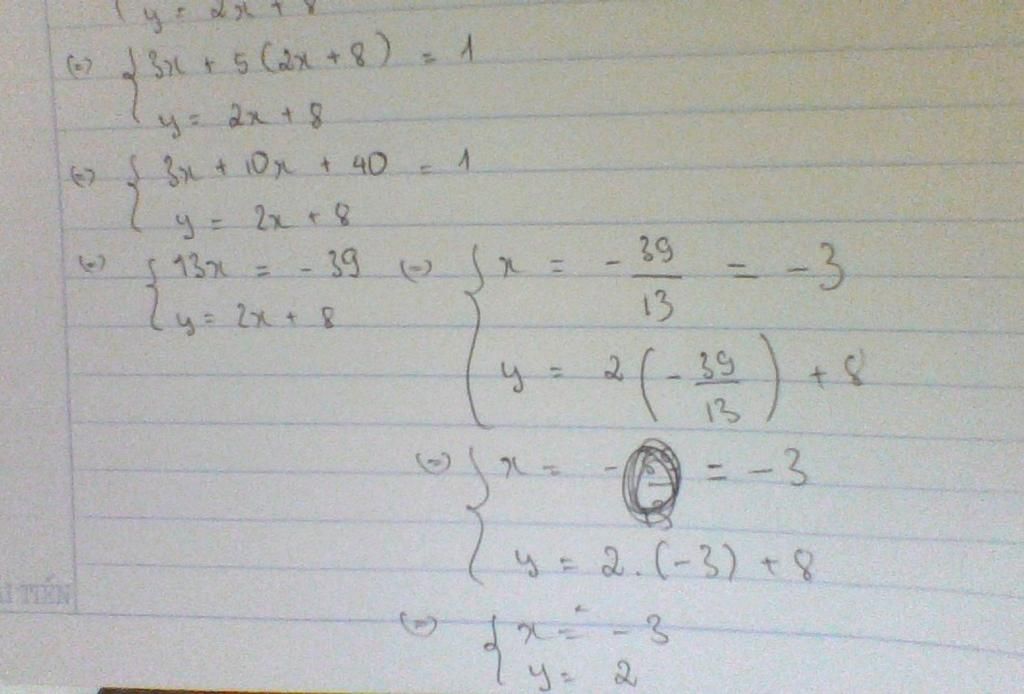 y = 2x + 8
(=) { 3x + 5(2x + 8) = 1
y = 2x + 8
(=) { 3x + 10x + 40 = 1
y = 2x + 8
(=) { 13x = - 39
y = 2x + 8
(=) { x = - 39/13 = - 3
y = 2(- 39/13) + 8
(=) { x = - = - 3
y = 2.(-3) + 8
(=) { x = - 3
y = 2
TIẾN